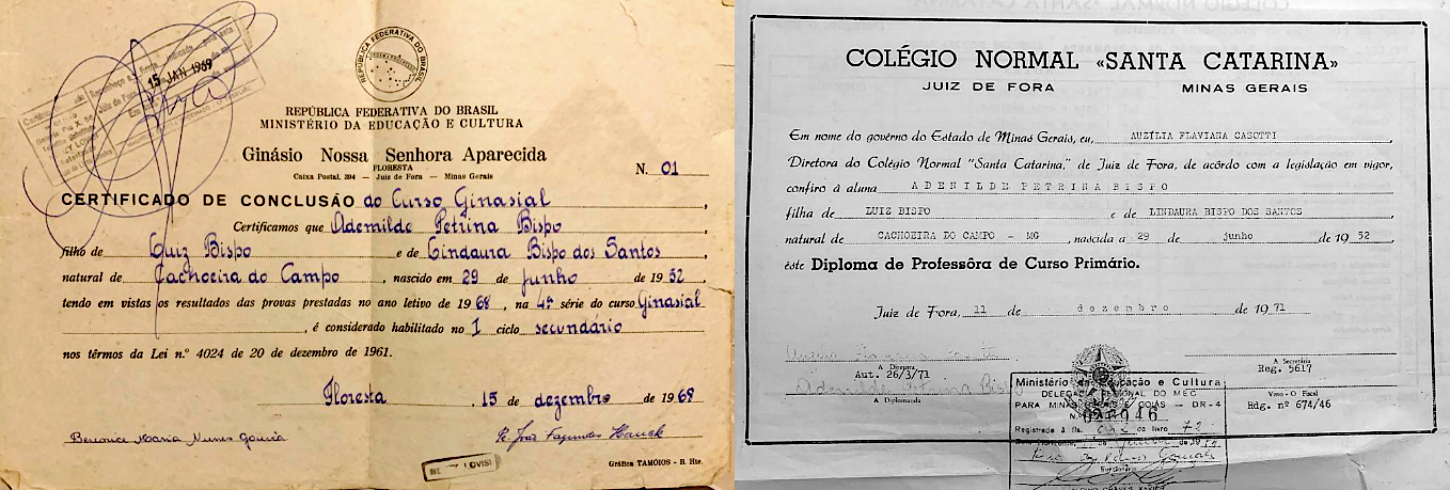 15 JAN 1969
REPÚBLICA FEDERATIVA DO BRASIL
REPÚBLICA FEDERATIVA DO BRASIL
MINISTÉRIO DA EDUCAÇÃO E CULTURA
Ginásio Nossa Senhora Aparecida
FLORESTA
Caixa Postal, 394 — Juiz de Fora — Minas Gerais
N. 01
CERTIFICADO DE CONCLUSÃO do Curso Ginasial,
Certificamos que Ademilde Petrina Bispo,
filho de Luiz Bispo e de Lindaura Bispo dos Santos,
natural de Cachoeira do Campo, nascido em 29 de junho de 1952,
tendo em vistas os resultados das provas prestadas no ano letivo de 1968, na 4ª série do curso Ginasial
, é considerado habilitado no I ciclo secundário
nos têrmos da Lei n.º 4024 de 20 de dezembro de 1961.
Floresta, 15 de dezembro de 1968
Berenice Maria Nunes Gouvia Pe. José Fagundes Hauck
Gráfica TAMÓIOS - B. Hte.
COLÉGIO NORMAL «SANTA CATARINA»
JUIZ DE FORA MINAS GERAIS
Em nome do govêrno do Estado de Minas Gerais, eu, AUZÍLIA FLAVIANA CASOTTI
Diretora do Colégio Normal "Santa Catarina," de Juiz de Fora, de acôrdo com a legislação em vigor,
confiro à aluna ADENILDE PETRINA BISPO
filha de LUIZ BISPO e de LINDAURA BISPO DOS SANTOS
natural de CACHOEIRA DO CAMPO - MG, nascida a 29 de junho de 1952
êste Diploma de Professôra de Curso Primário.
Juiz de Fora, 11 de dezembro de 1971
A Diretora
Aut. 26/3/71
A Secretária
Reg. 5617
Ademilde Petrina Bispo
A Diplomanda
Visto - O Fiscal
Rdg. nº 674/46
Ministério da Educação e Cultura
DELEGACIA REGIONAL DO MEC
PARA MINAS GERAIS E GOIÁS - DR-4